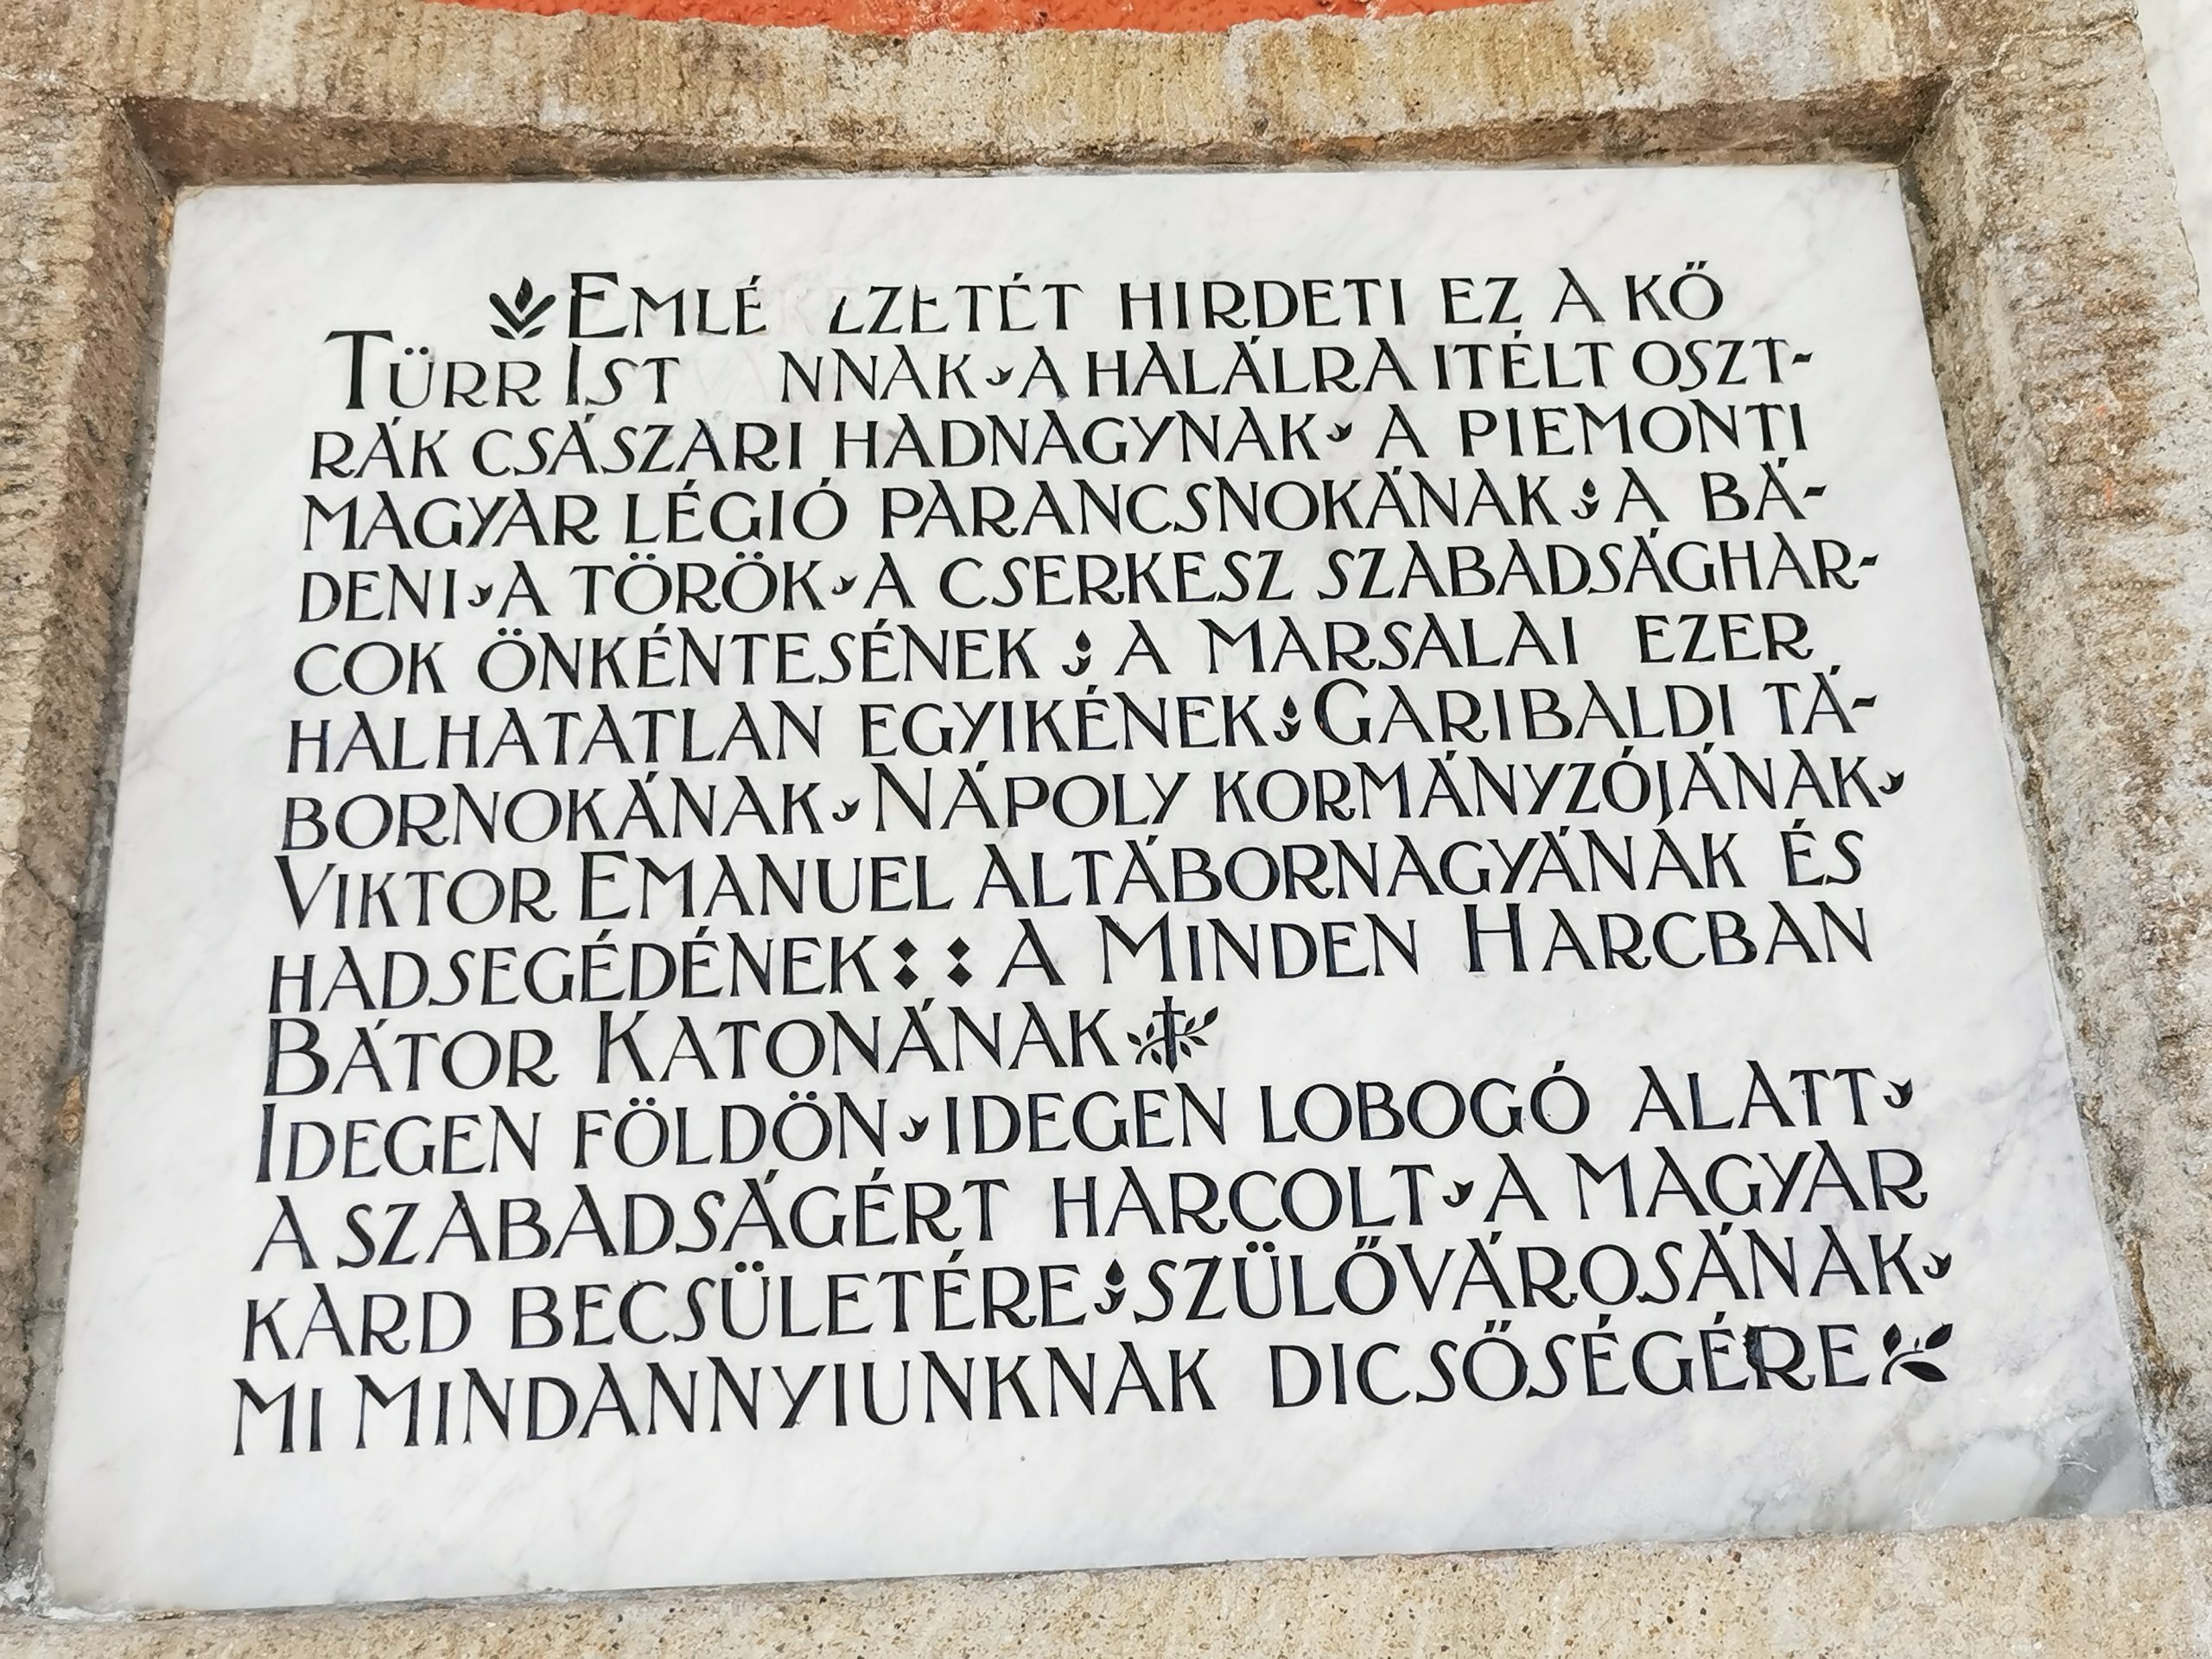 EMLÉ ZETÉT HIRDETI EZ A KŐ
TÜRR IST NNAK, A HALÁLRA ITÉLT OSZT-
RÁK CSÁSZARI HADNAGYNAK, A PIEMONTI
MAGYAR LÉGIÓ PARANCSNOKÁNAK; A BÁ-
DENI, A TÖRÖK, A CSERKESZ SZABADSÁGHAR-
COK ÖNKÉNTESÉNEK; A MARSALAI EZER
HALHATATLAN EGYIKÉNEK; GARIBALDI TÁ-
BORNOKÁNAK, NÁPOLY KORMÁNYZÓJÁNAK,
VIKTOR EMANUEL ALTÁBORNAGYÁNAK ÉS
HADSEGÉDÉNEK: : A MINDEN HARCBAN
BÁTOR KATONÁNAK
IDEGEN FÖLDÖN, IDEGEN LOBOGÓ ALATT,
A SZABADSÁGÉRT HARCOLT, A MAGYAR
KARD BECSÜLETÉRE; SZÜLŐVÁROSÁNAK,
MI MINDANNYIUNKNAK DICSŐSÉGÉRE